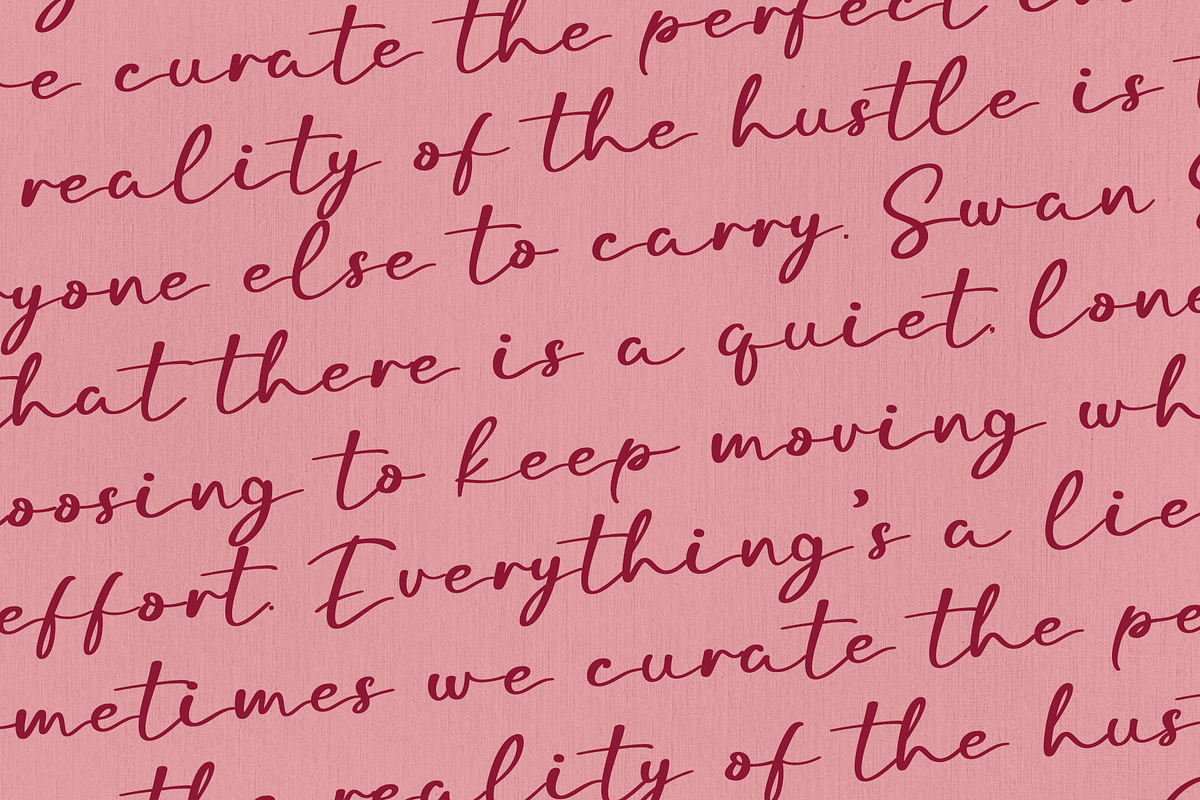 we curate the perfect
reality of the hustle is
everyone else to carry. Swan
that there is a quiet, lone
choosing to keep moving wh
effort. Everything's a lie
sometimes we curate the pe
the reality of the hus